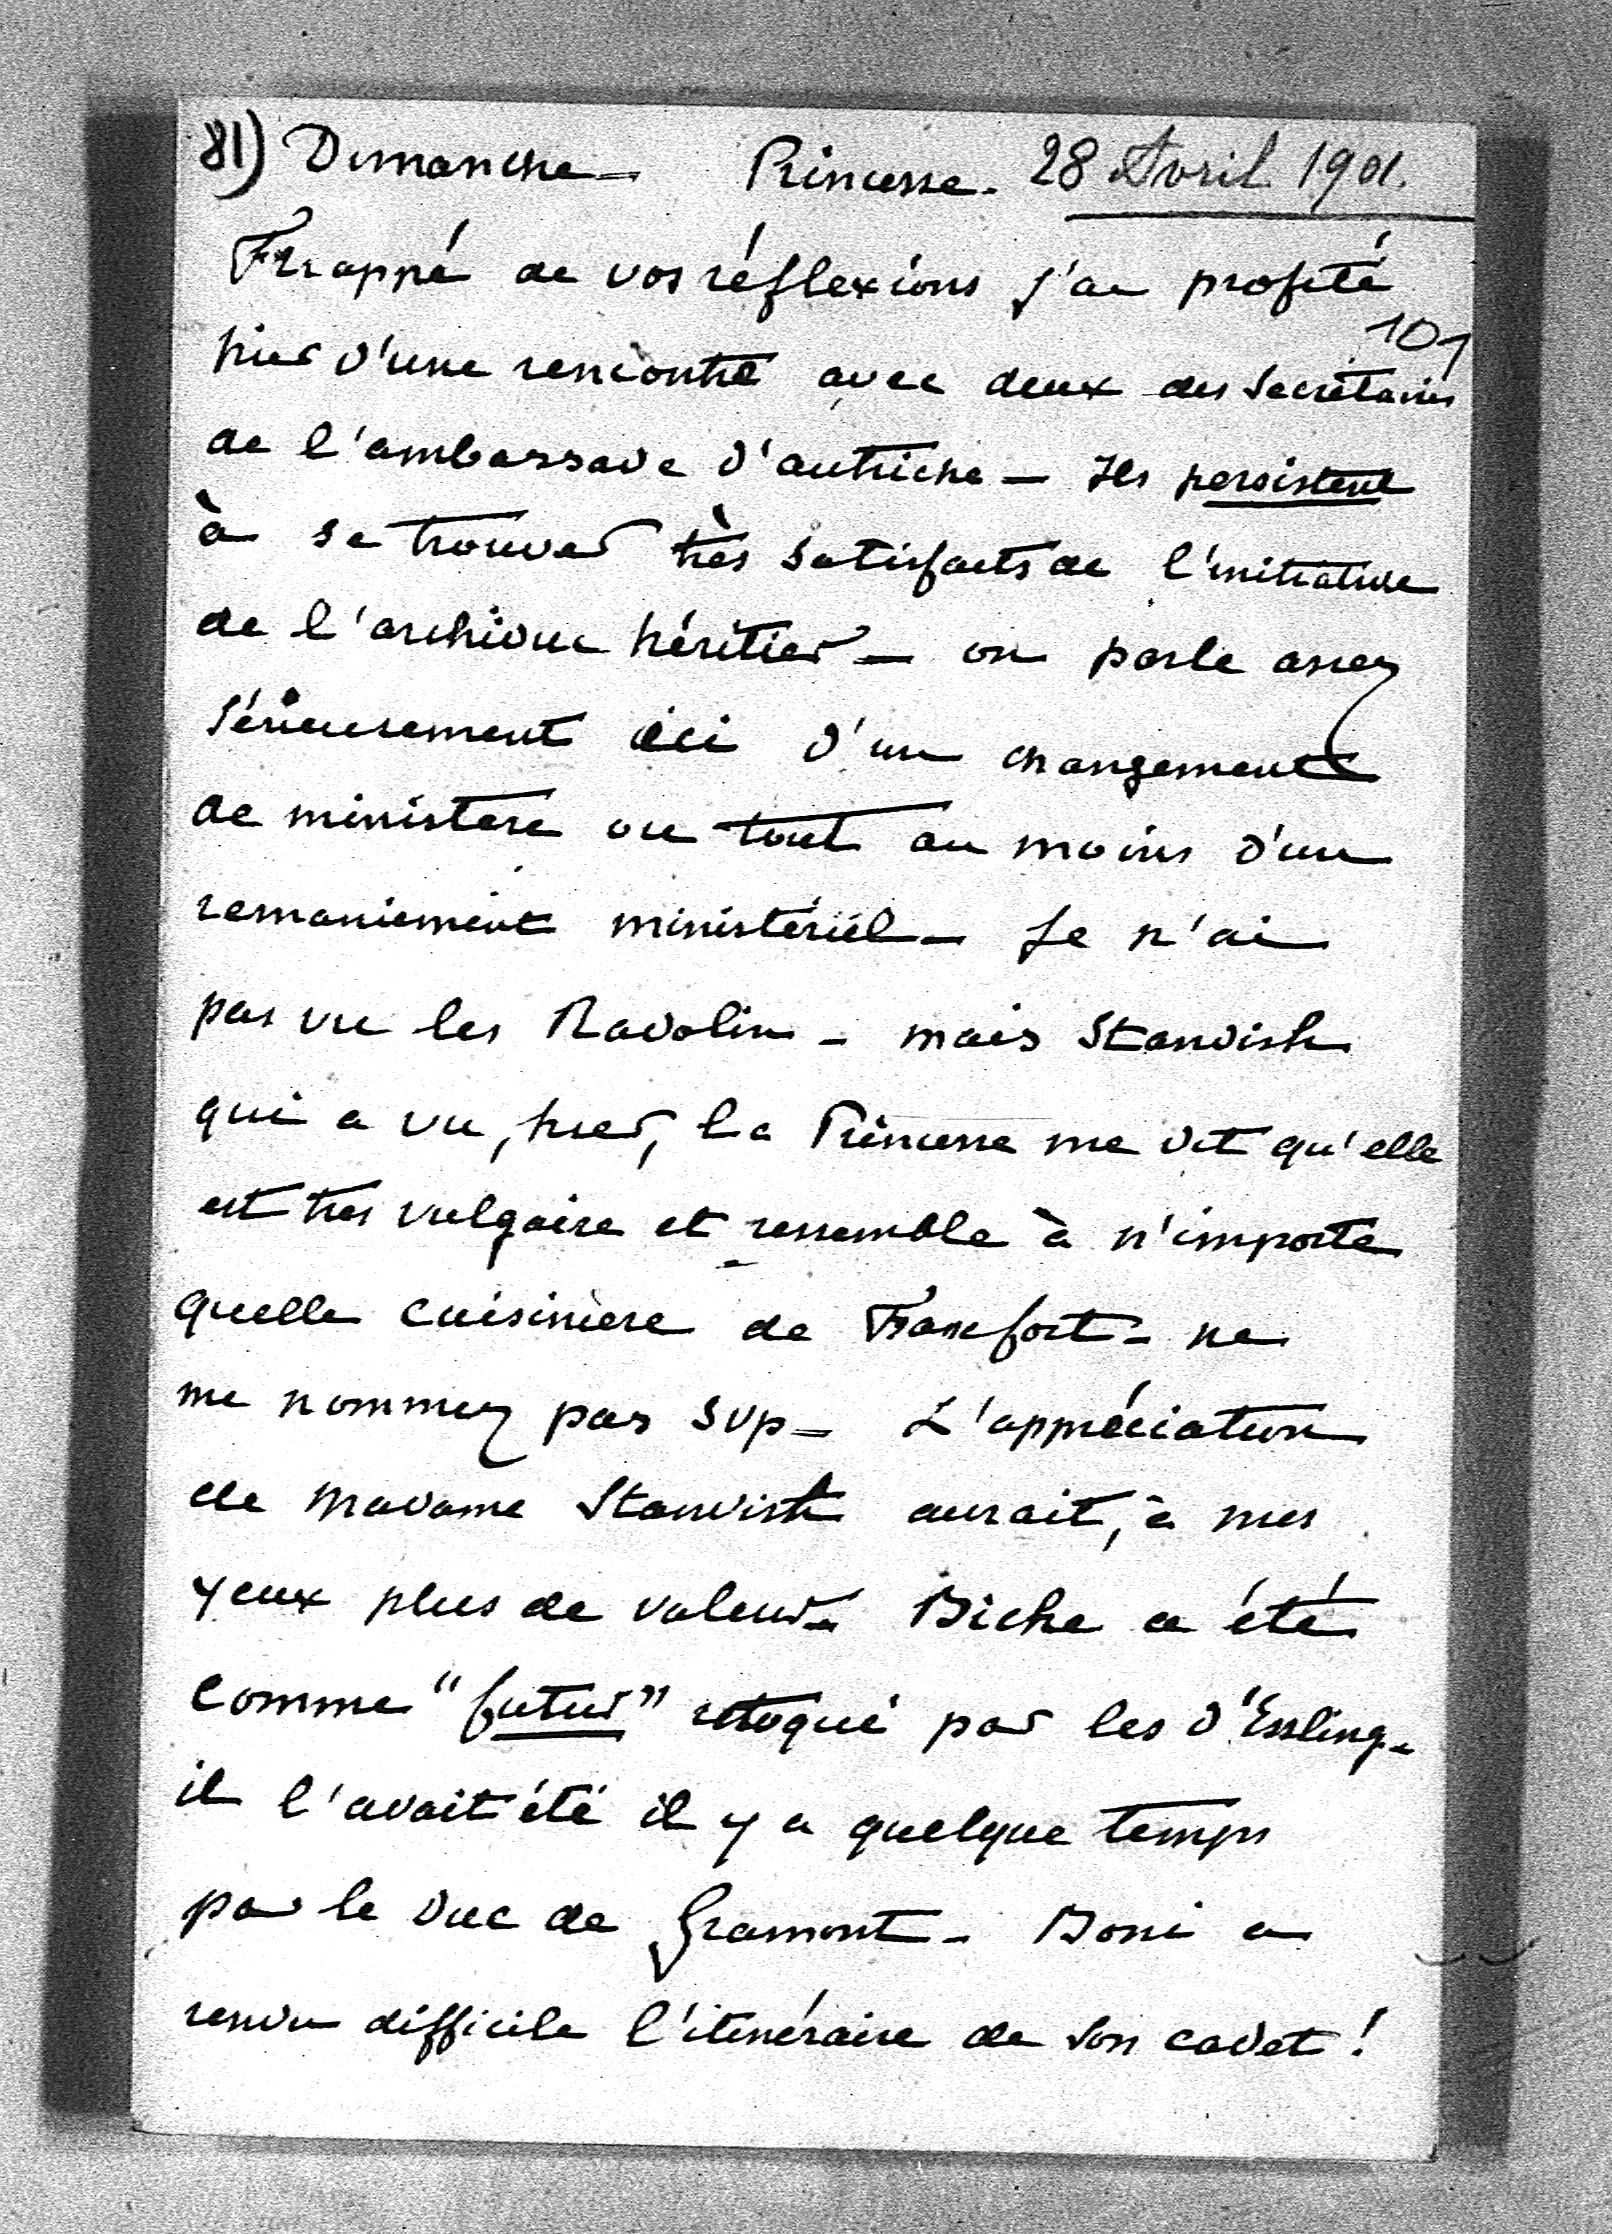 81) Dimanche – Princesse – 28 Avril 1901.
Frappé de vos réflexions j'ai profité
101
hier d'une rencontre avec deux des secrétaires
de l'ambassade d'autriche – Ils persistent
à se trouver très satisfaits de l'initiative
de l'archiduc héritier – on parle assez
sérieusement ici d'un changement
de ministère ou tout au moins d'un
remaniement ministériel – Je n'ai
pas vu les Radolin – mais Standish
qui a vu, hier, la Princesse me dit qu'elle
est très vulgaire et ressemble à n'importe
quelle cuisinière de Francfort – ne
me nommez pas svp – L'appréciation
de Madame Standish aurait, à mes
yeux plus de valeur – Biche a été
comme "futur" retoqué par les d'Essling –
il l'avait été il y a quelque temps
par le Duc de Gramont – Boni a
rendu difficile l'itinéraire de son cadet !